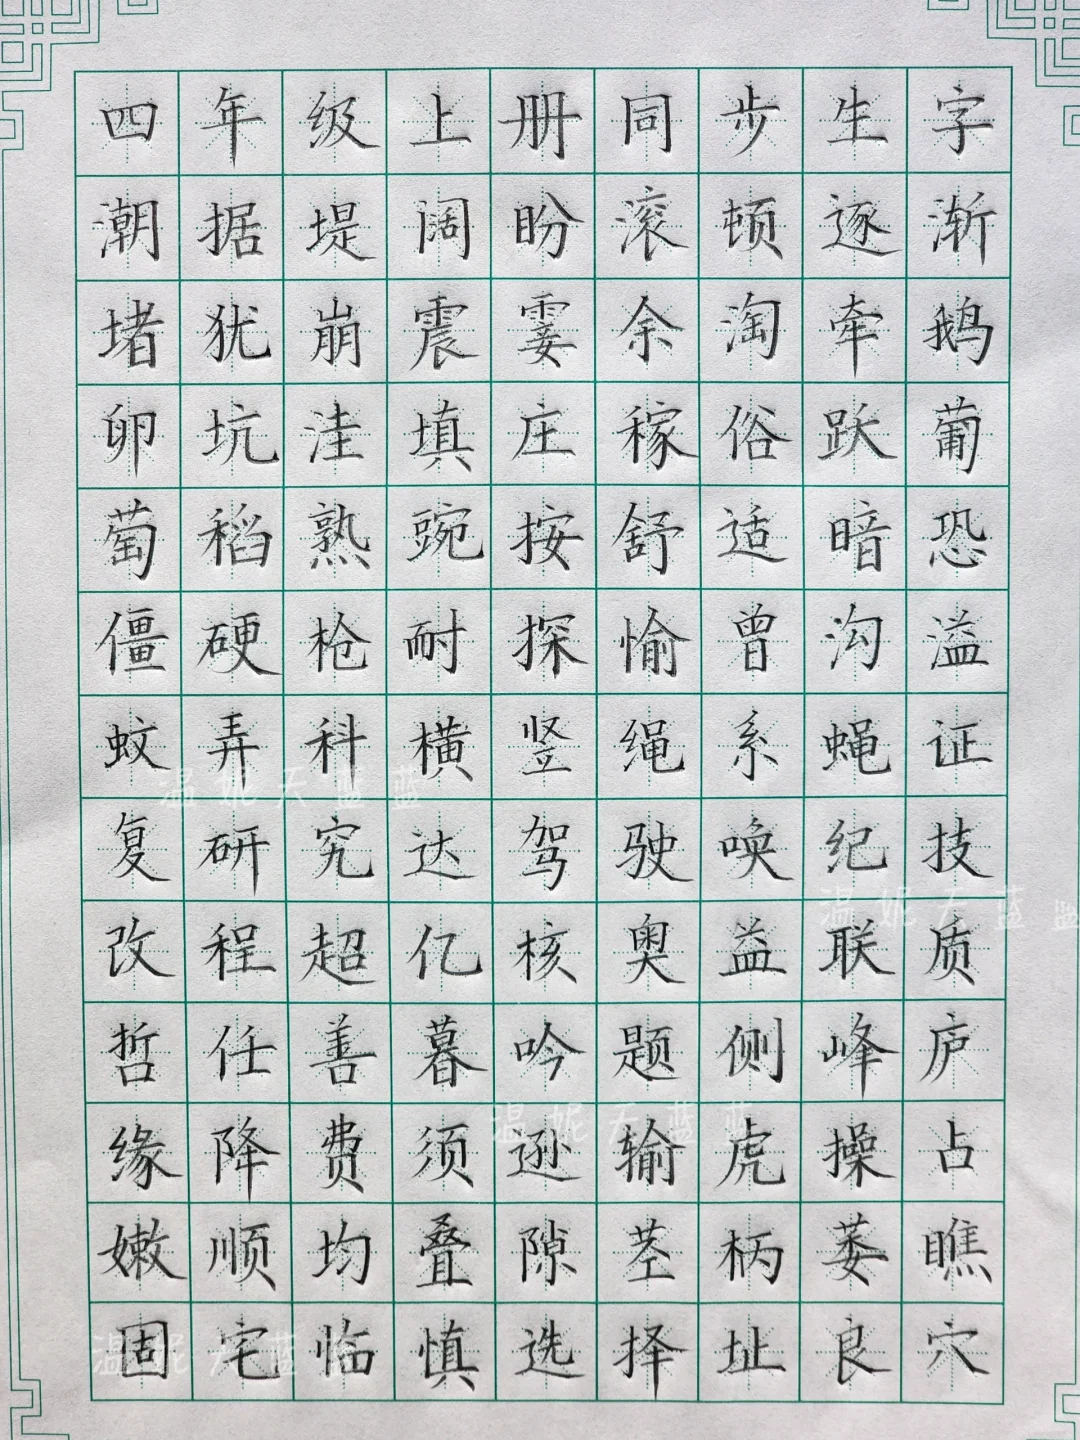 四年级上册同步生字
潮据堤阔盼滚顿逐渐
堵犹崩震霎余淘牵鹅
卵坑洼填庄稼俗跃葡
萄稻熟豌按舒适暗恐
僵硬枪耐探愉曾沟溢
蚊弄科横竖绳系蝇证
复研究达驾驶唤纪技
改程超亿核奥益联质
哲任善暮吟题侧峰庐
缘降费须逊输虎操占
嫩顺均叠隙茎柄萎瞧
固宅临慎选择址良穴
温妮天蓝蓝
温妮天蓝蓝
温妮天蓝蓝
温妮天蓝蓝